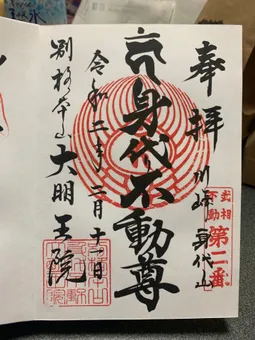 奉拝
川崎身代山
武相
不動
第二番
身代り不動尊
令和二年二月十一日
別格本山
大明王院